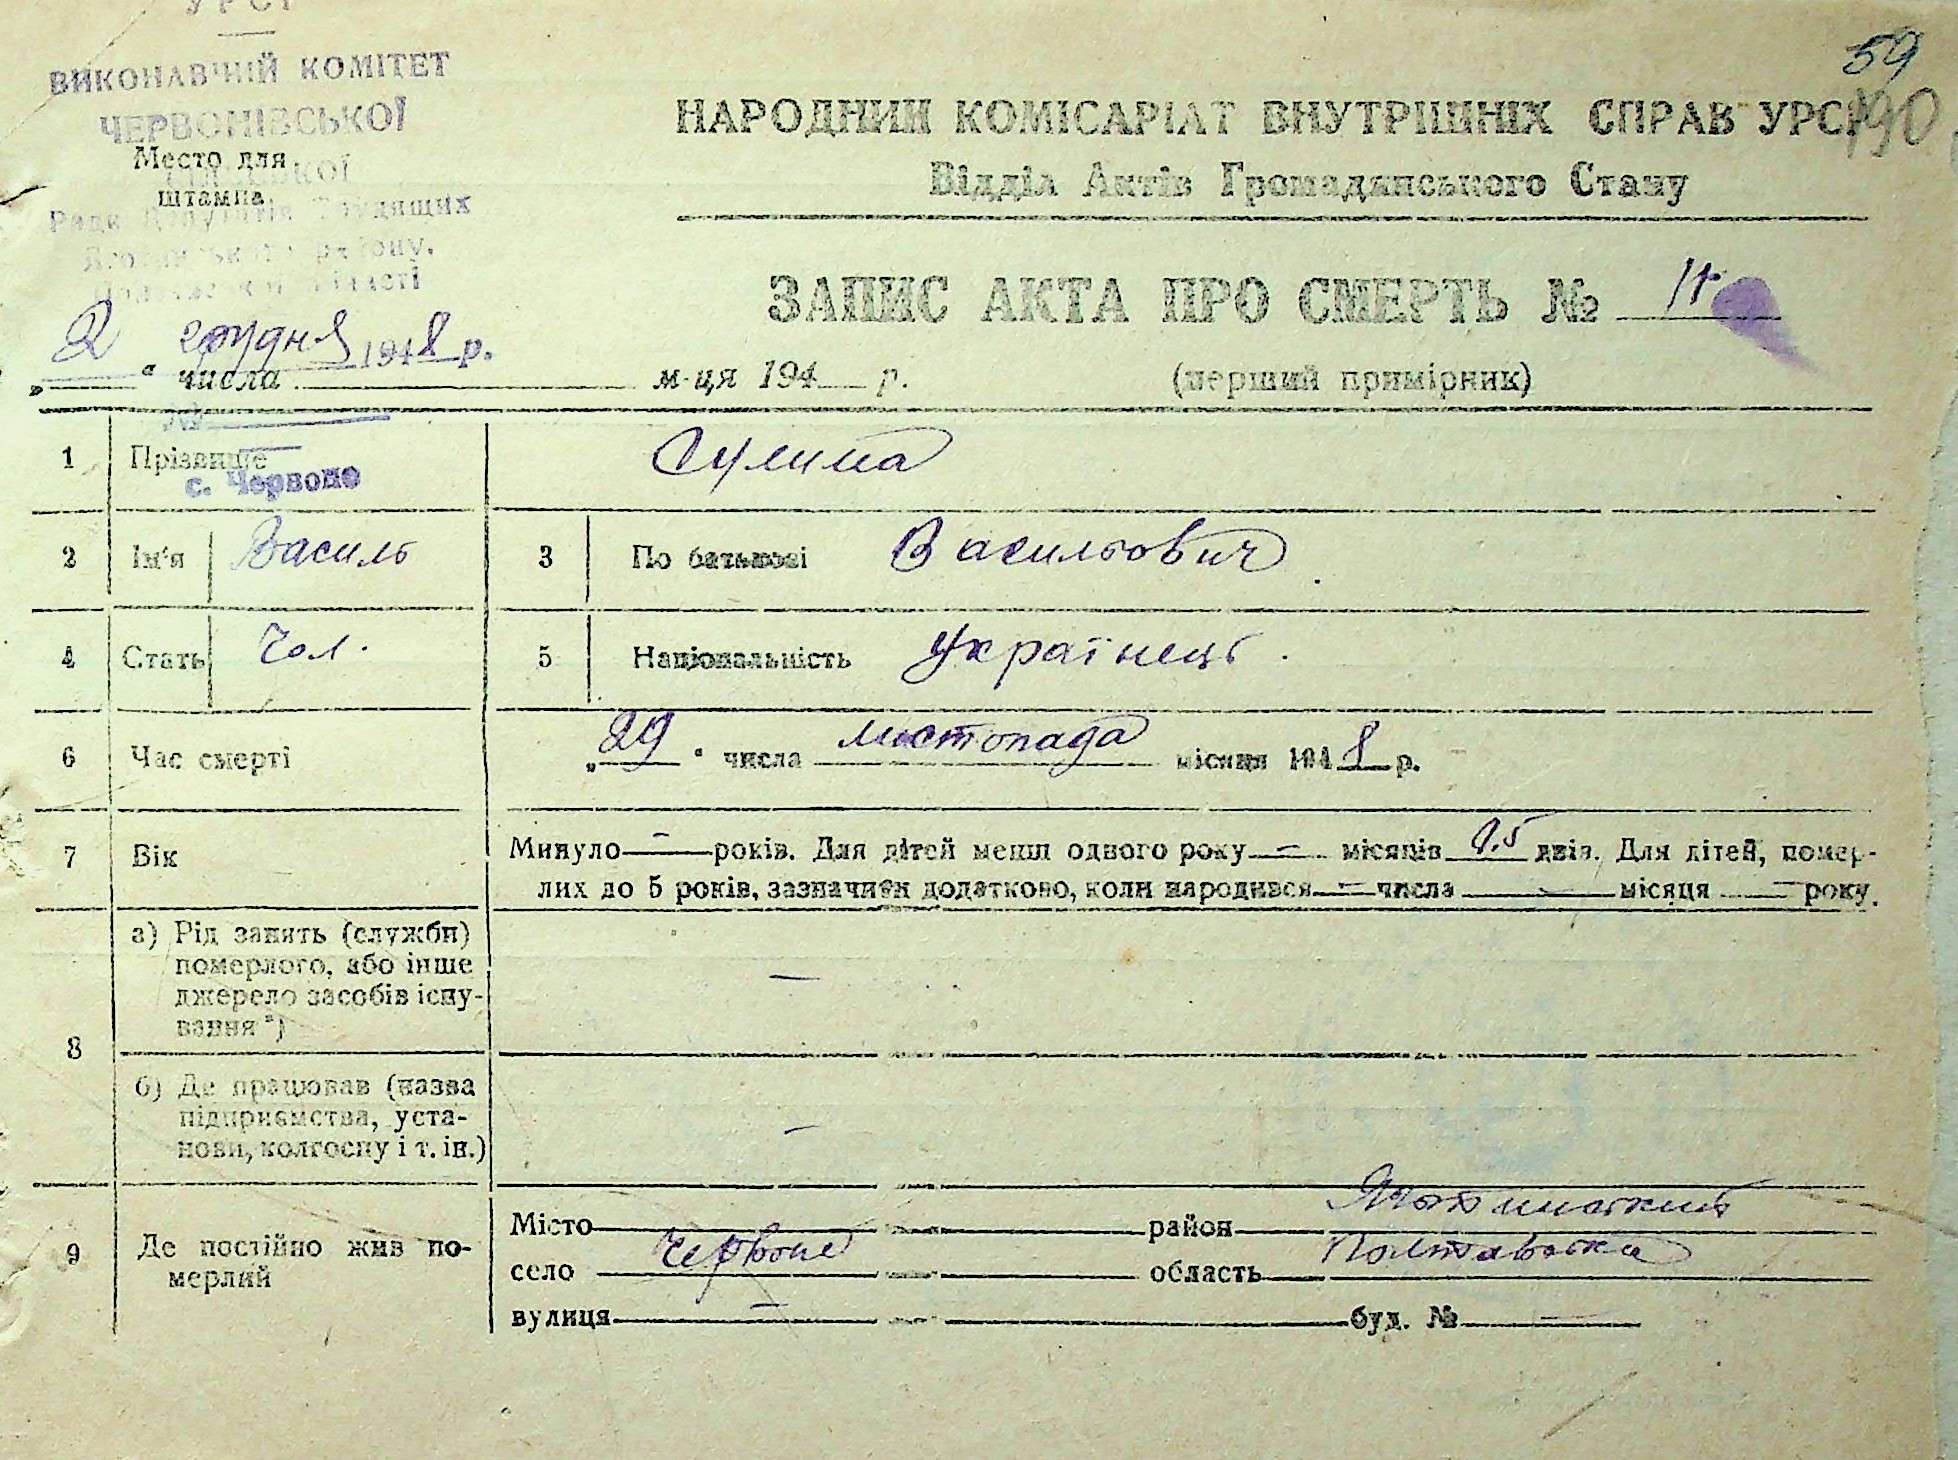 УРСР
ВИКОНАВЧИЙ КОМІТЕТ
ЧЕРВОНІВСЬКОЇ
Место для
штампа
Ради Депутатів Трудящих
Яготинського району,
Полтавської області
2 грудня 1948 р.
59
190
НАРОДНИЙ КОМІСАРІАТ ВНУТРІШНІХ СПРАВ УРСР
Відділ Актів Громадянського Стану
ЗАПИС АКТА ПРО СМЕРТЬ №
„ “ числа м-ця 194 р.
(перший примірник)
1 Прізвище Сулима
с. Червоне
2 Ім'я Василь 3 По батькові Васильович
4 Стать Чол. 5 Національність Українець.
6 Час смерті „29“ числа листопада місяця 1948 р.
7 Вік Минуло — років. Для дітей менш одного року — місяців днів. Для дітей, помер-
лих до 5 років, зазначити додатково, коли народився — числа — місяця — року.
8 а) Рід занять (служби)
померлого, або інше
джерело засобів існу-
вання *) —
б) Де працював (назва
підприємства, уста-
нови, колгоспу і т. ін.) —
9 Де постійно жив по-
мерлий
Місто район Яготинський
село Червоне область Полтавська
вулиця — буд. № —